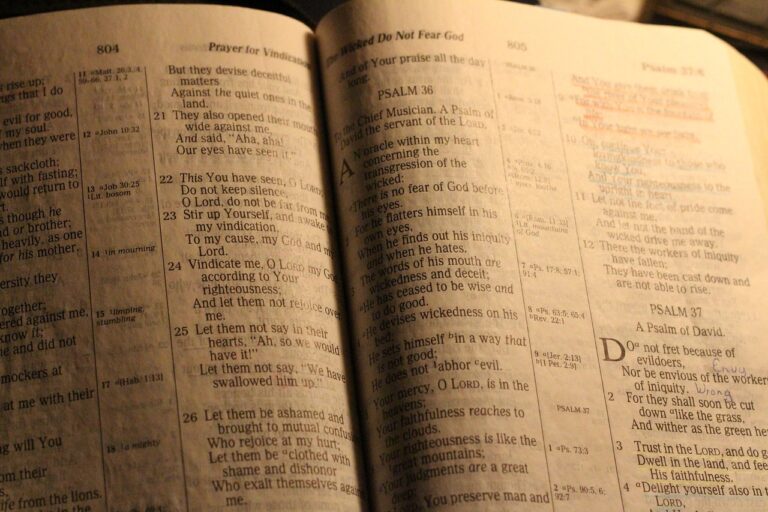 804
Prayer for Vindication
rise up;
ngs that I do
evil for good,
my soul.
when they were
sackcloth;
lf with fasting;
would return to
s though he
nd or brother;
heavily, as one
for his mother.
versity they
ogether;
ered against me,
know it;
me and did not
mockers at
at me with their
ng will You
om their
life from the lions.
11
12 aJohn 10:32
13 aJob 30:25
1Lit. bosom
14 1in mourning
15 1limping,
stumbling
17 a[Hab. 1:13]
18 1a mighty
But they devise deceitful
matters
Against the quiet ones in the
land.
21 They also opened their mouth
wide against me,
And said, “Aha, aha!
Our eyes have seen it.”
22 This You have seen, O LORD;
Do not keep silence.
O Lord, do not be far from me.
23 Stir up Yourself, and awake to
my vindication,
To my cause, my God and my
Lord.
24 Vindicate me, O LORD my God,
according to Your
righteousness;
And let them not rejoice over
me.
25 Let them not say in their
hearts, “Ah, so we would
have it!”
Let them not say, “We have
swallowed him up.”
26 Let them be ashamed and
brought to mutual confusion
Who rejoice at my hurt;
Let them be aclothed with
shame and dishonor
Who exalt themselves against
me.
The Wicked Do Not Fear God
805
Psalm 37:4
And of Your praise all the day
long.
PSALM 36
To the Chief Musician. A Psalm of
David the servant of the LORD.
AN oracle within my heart
concerning the
transgression of the
wicked:
There is no fear of God before
his eyes.
For he flatters himself in his
own eyes,
When he finds out his iniquity
and when he hates.
The words of his mouth are
wickedness and deceit;
He has ceased to be wise and
to do good.
He devises wickedness on his
bed;
He sets himself bin a way that
is not good;
He does not 1abhor cevil.
Your mercy, O LORD, is in the
heavens;
Your faithfulness reaches to
the clouds.
Your righteousness is like the
great mountains;
Your judgments are a great
deep;
You preserve man and
of God
7 aPs. 17:8; 57:1;
91:4
8 aPs. 63:5; 65:4
bRev. 22:1
9 a[Jer. 2:13]
b[1 Pet. 2:9]
PSALM 37
1 aPs. 73:3
2 aPs. 90:5, 6;
92:7
10
righteousness to the
upright in heart.
11 Let not the foot of pride come
against me,
And let not the hand of the
wicked drive me away.
12 There the workers of iniquity
have fallen;
They have been cast down and
are not able to rise.
PSALM 37
A Psalm of David.
DOa not fret because of
evildoers,
Envy
Nor be envious of the workers
of iniquity.
Wrong
2 For they shall soon be cut
down alike the grass,
And wither as the green he
3 Trust in the LORD, and do g
Dwell in the land, and fee
His faithfulness.
4 aDelight yourself also in t
LORD,